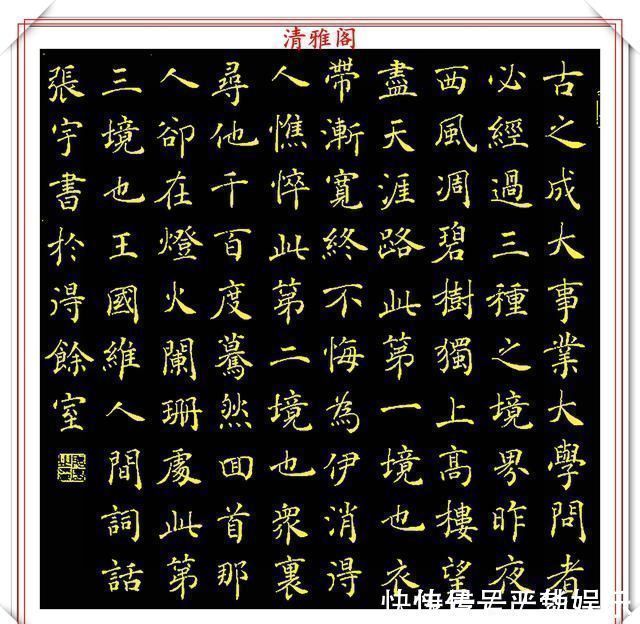 清雅阁
古之成大事業大學問者
必經過三種之境界昨夜
西風凋碧樹獨上高樓望
盡天涯路此第一境也衣
帶漸寬終不悔為伊消得
人憔悴此第二境也眾裏
尋他千百度驀然回首那
人卻在燈火闌珊處此第
三境也王國維人間詞話
張宇書於得餘室